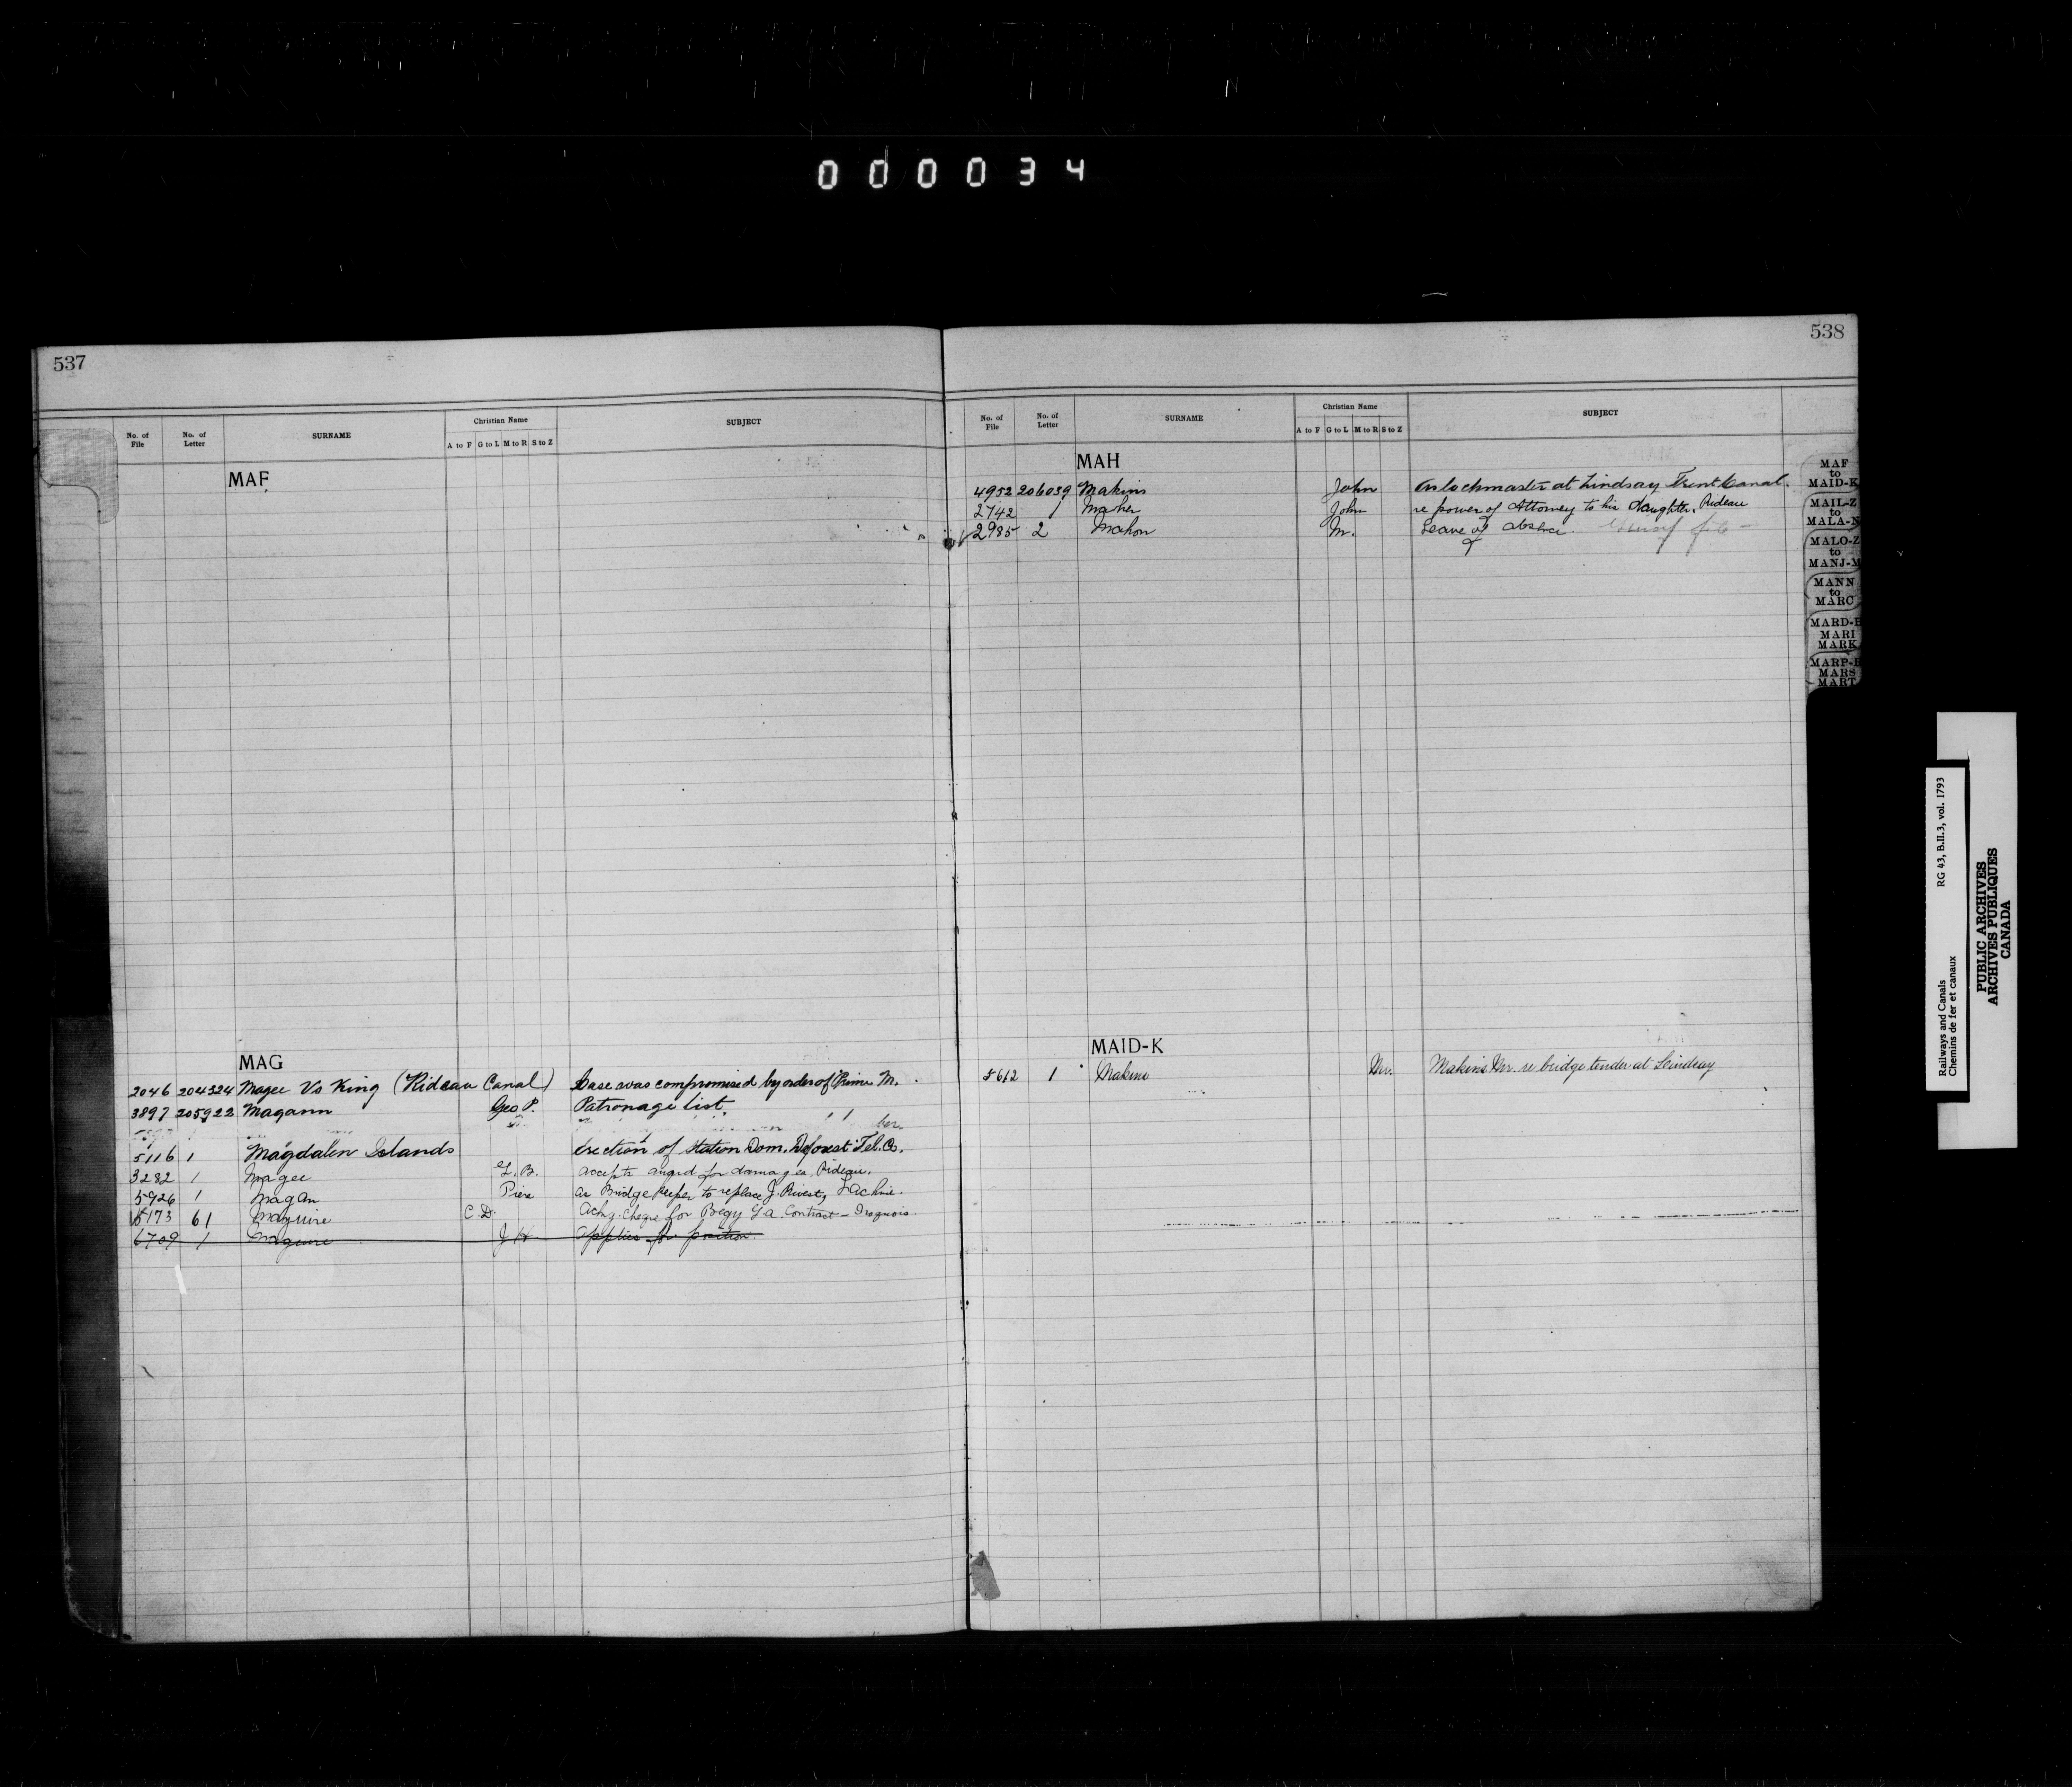 000034
537
No. of File No. of Letter SURNAME Christian Name A to F G to L M to R S to Z SUBJECT
MAF
MAG
2046 204324 Magee Vs King (Rideau Canal) Case was compromised by order of Prime M.
3897 205922 Magann Geo P. Patronage list.
5116 1 Magdalen Islands Erection of Station Dom. Deforest Tel. Co.
3282 1 Magee accepts award for damages, Rideau.
5926 1 Magan Piere as Bridge Keeper to replace J. Rivest, Lachine.
5173 61 Maguire C. D. Ackg. Cheque for Contract - Iroquois.
6709 1 Maguire J H Applies for position.
538
No. of File No. of Letter SURNAME Christian Name A to F G to L M to R S to Z SUBJECT
MAH
4952 206039 Makins John as lockmaster at Lindsay Trent Canal.
2742 1 Maher John re power of Attorney to his daughter, Rideau
2985 2 Mahon M. Leave of absence.
MAID-K
5612 1 Makins Mr. Makins Mr. re bridge tender at Lindsay
MAF to MAID-K
MAIL-Z to MALA-N
MALO-Z to MANJ-M
MANN to MARC
MARD-H
MARI
MARK
MARP-R
MARS
MART
Railways and Canals RG 43, B.II.3, vol. 1793
Chemins de fer et canaux
PUBLIC ARCHIVES
ARCHIVES PUBLIQUES
CANADA